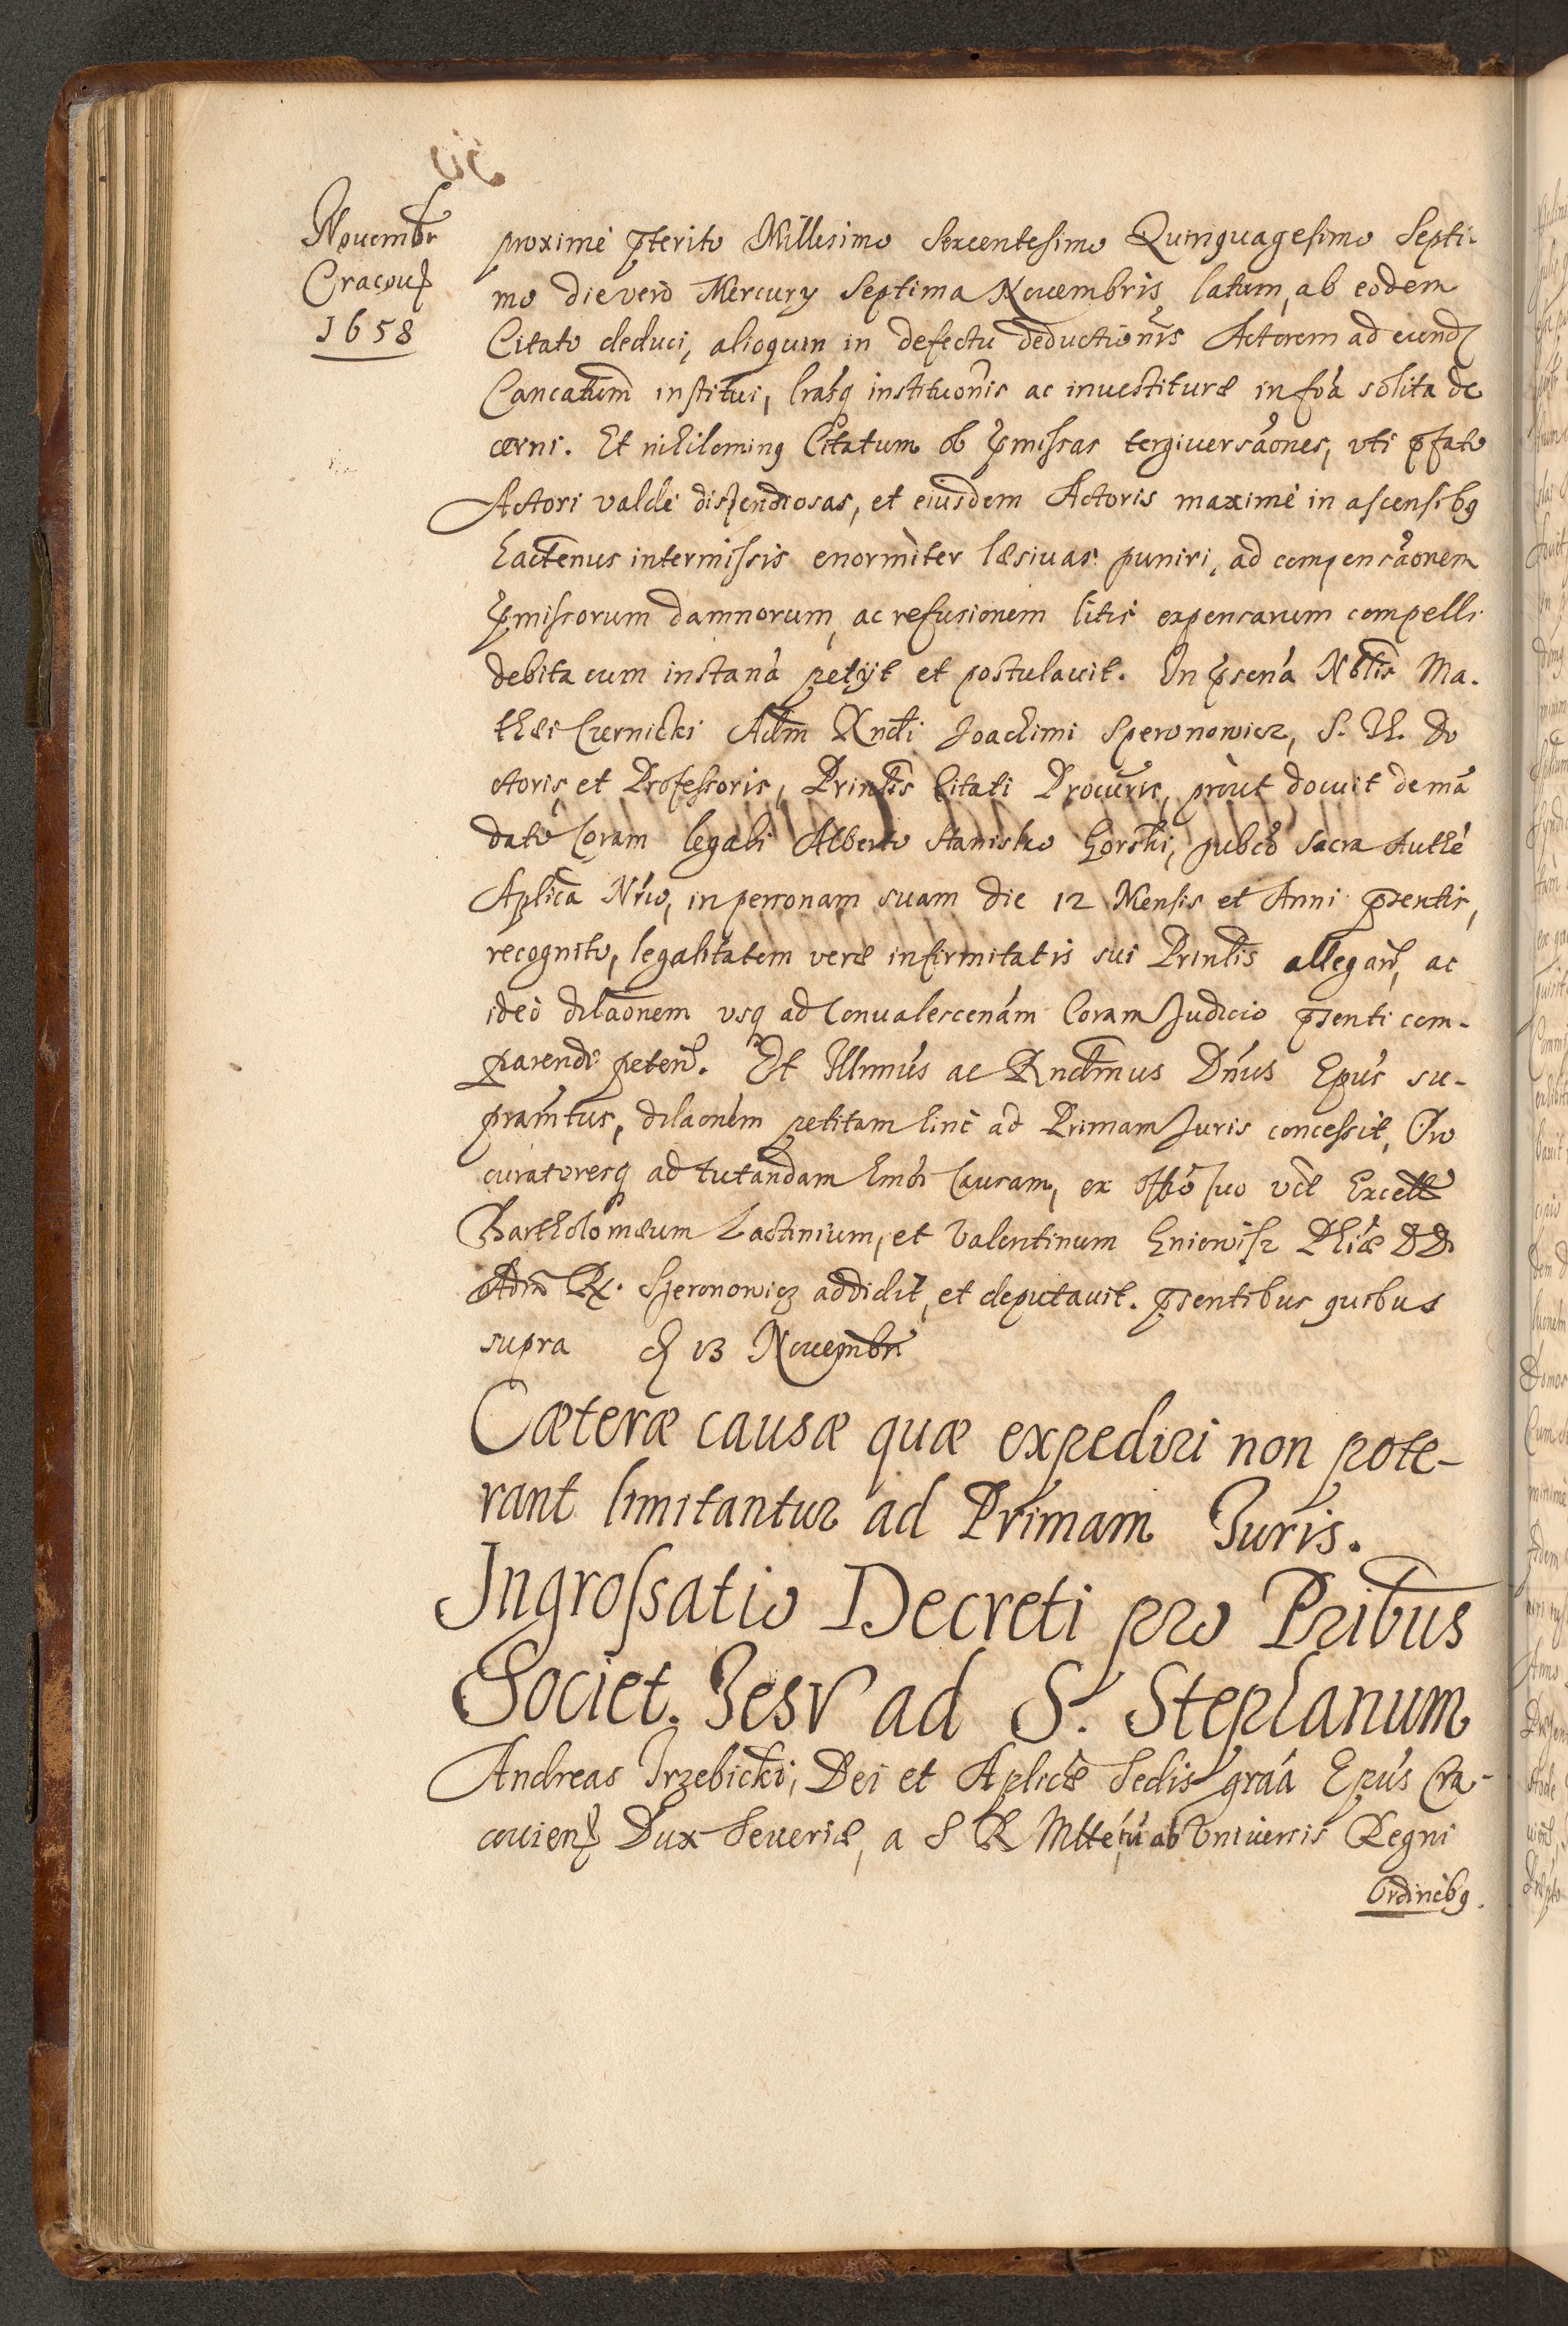 Novembr
Cracov
1658
proximè pterito Millesimo Sexcentesimo Quinquagesimo Septi-
mo die verò Mercury Septima Novembris latum, ab eodem
Citato deduci, alioquin in defectu deductionis Actorem ad eund
Cancatum institui, lrasq instituonis ac investituræ in foa solita de
cerni. Et nihilominq Citatum ob pmissas tergiversaones, vti pfato
Actori valde dispendiosas, et eiusdem Actoris maximè in ascensibq
hactenus intermissis enormiter læsivas puniri, ad compensaonem
pmissorum damnorum, ac refusionem litis expensarum compelli
debita cum instana petijt et postulavit. In psena Nblis Ma-
thæi Czernicki Adm Rndi Joachimi Speronowicz, S. Th. Do
ctoris, et Professoris, Prinlis Citati Procuris, prout docuit de mã
dato Coram legali Alberto Stanislao Gorski, pubco sacra Authe
Aplica Nrio, in personam suam die 12 Mensis et Anni psentis,
recognito, legalitatem veræ infirmitatis sui Prinlis allegan, ac
ideò dilaonem vsq ad Convalescenam Coram Judicio psenti com-
parendi peten. Et Illmus ac Rndmus Dnus Epus su-
pramtus, dilaonem petitam hinc ad Primam Juris concessit, Pro
curatoresq ad tutandam hmoi Causam, ex offo suo vdt Excell
Bartholomæum Lactinium, et Valentinum Gniewisz Phiæ DD
Adm R. Speronowicz addidit, et deputavit. psentibus quibus
supra d 13 Novembr
Cæteræ causæ quæ expediri non pote-
rant limitantur ad Primam Juris.
Ingrossatio Decreti pro Pribus
Societ. Jesv ad S. Stephanum
Andreas Trzebicki, Dei et Aplicæ Sedis graa Epus Cra-
covien Dux Severiæ, a S R Mtte, tu ab Vniversis Regni
Ordinibq.